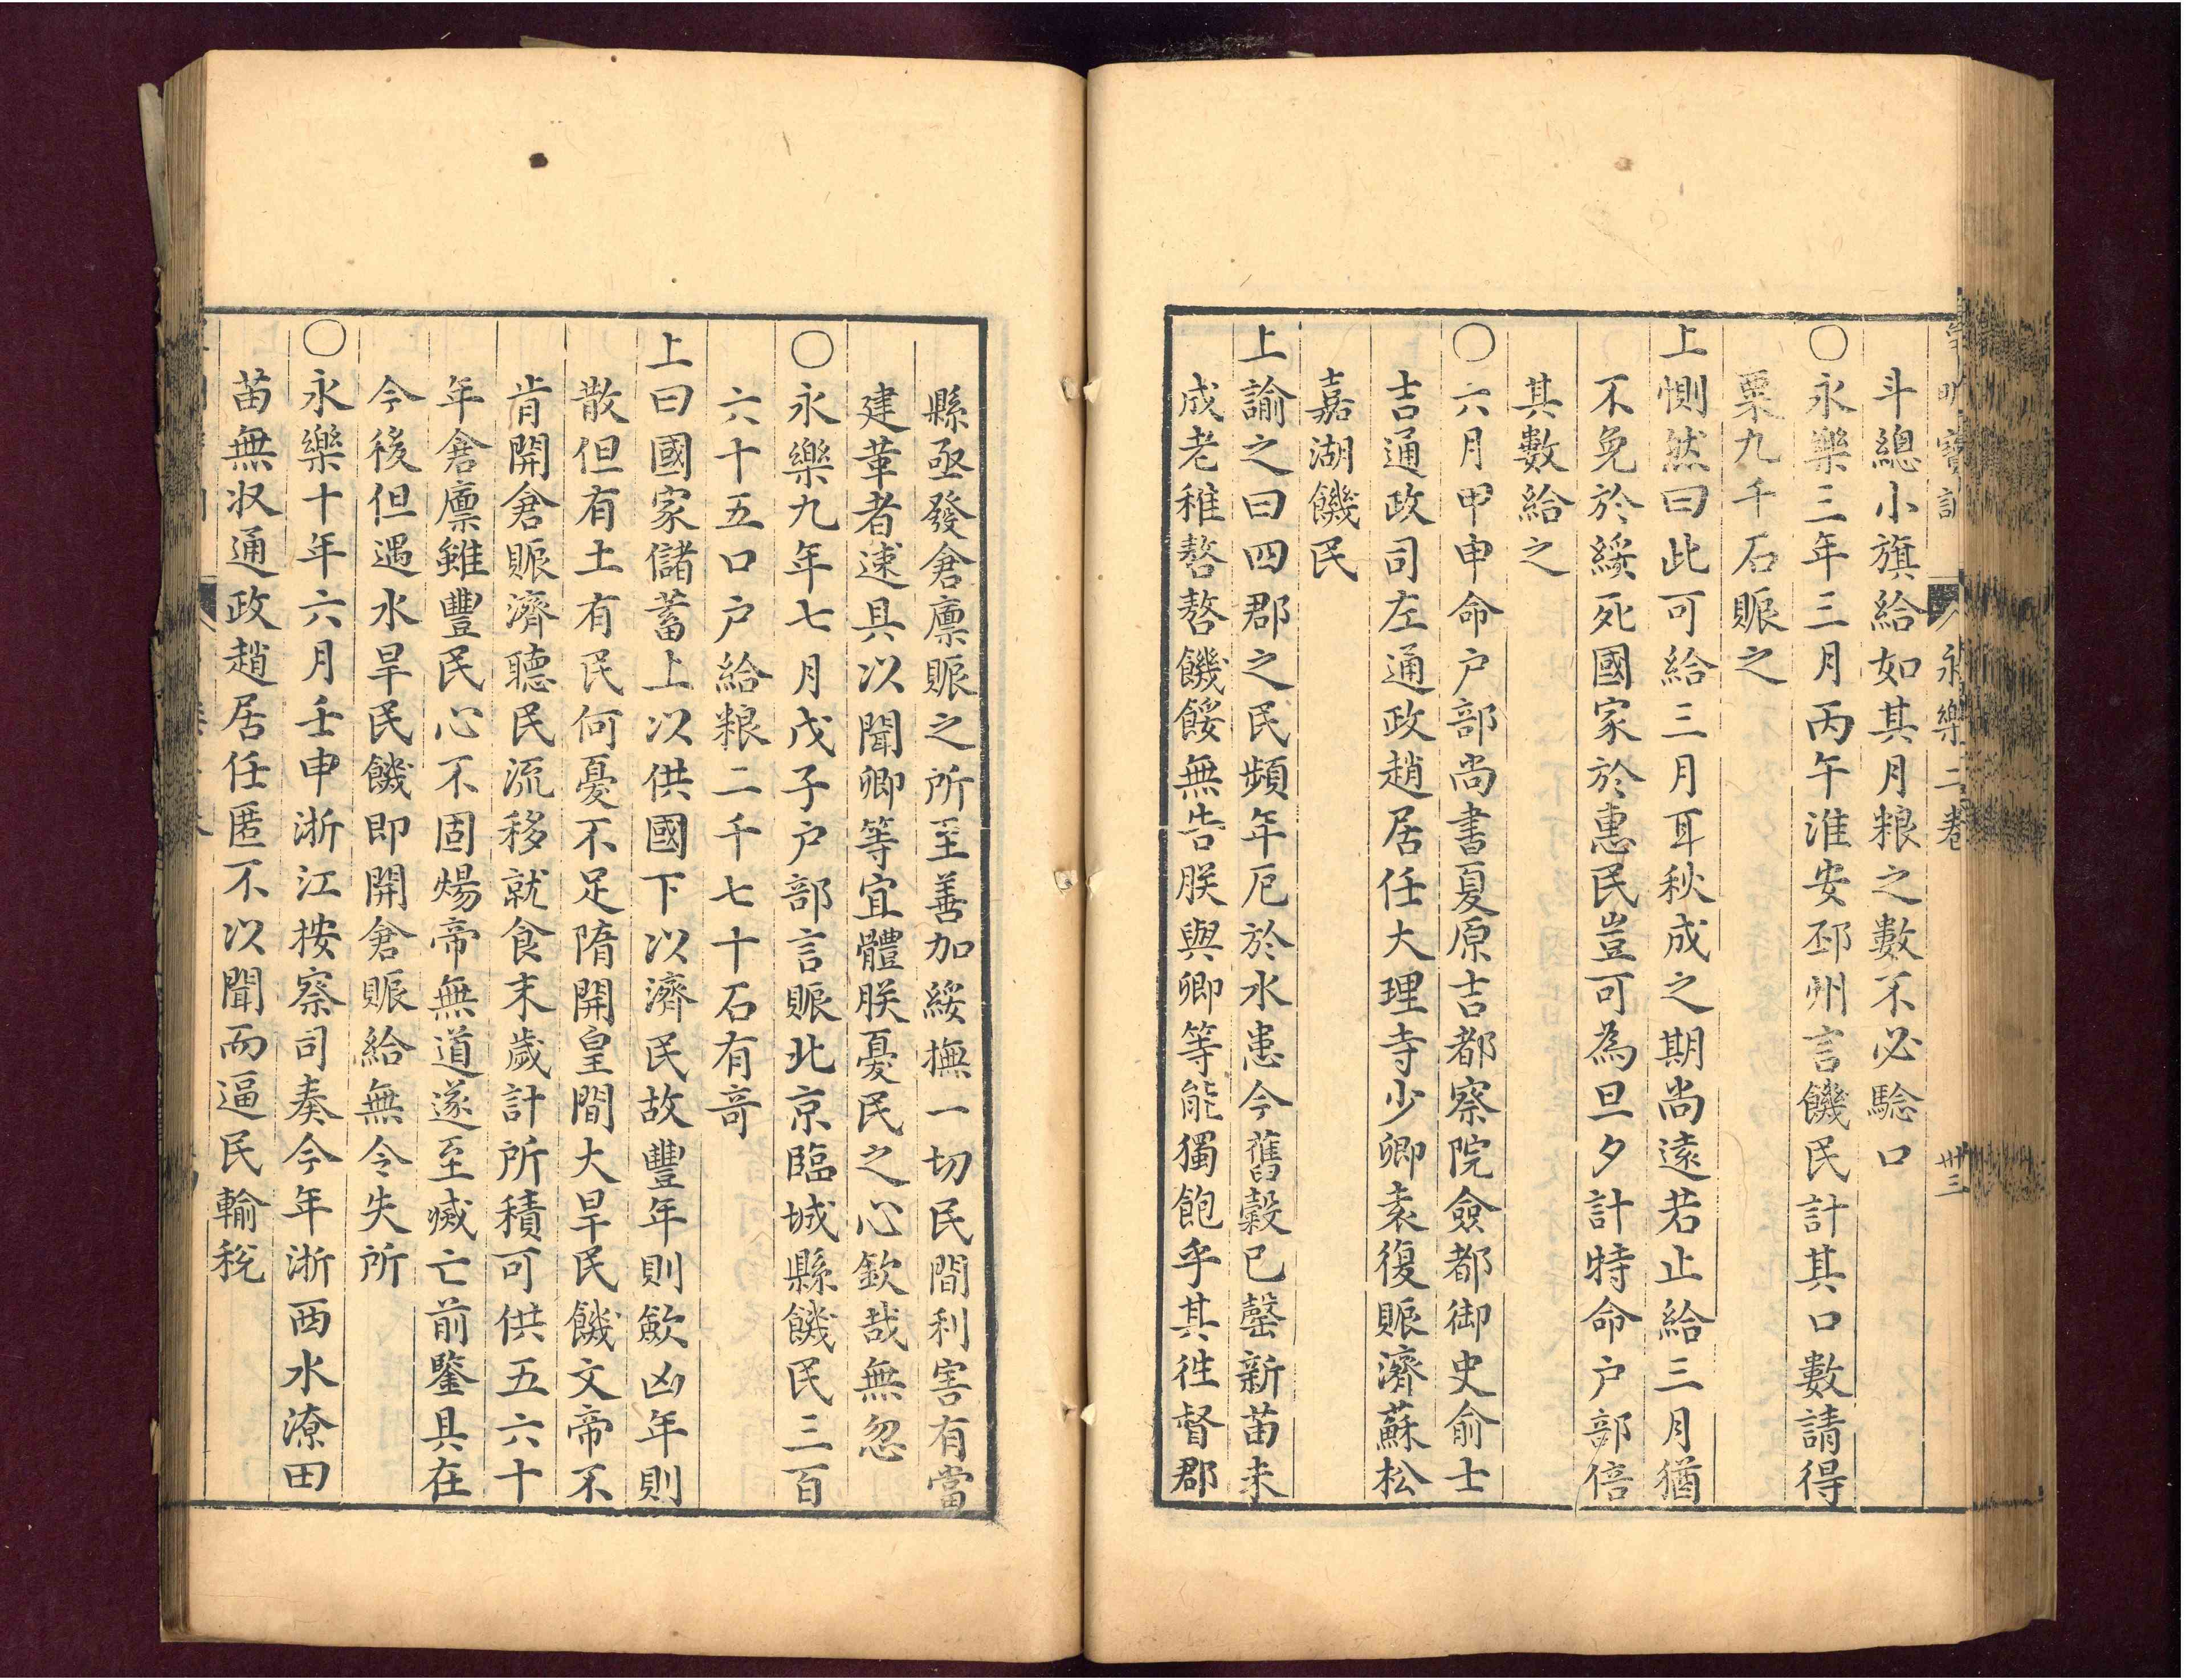 皇明寶訓 永樂二卷 卅三
斗總小旗給如其月粮之數不必騐口
○永樂三年三月丙午淮安邳州言饑民計其口數請得
粟九千石賑之
上惻然曰此可給三月耳秋成之期尚遠若止給三月猶
不免於綏死國家於惠民豈可為旦夕計特命户部倍
其數給之
○六月甲申命户部尚書夏原吉都察院僉都御史俞士
吉通政司左通政趙居任大理寺少卿袁復賑濟蘇松
嘉湖饑民
上諭之曰四郡之民頻年厄於水患今舊穀已罄新苗未
成老稚嗸嗸饑餒無告朕與卿等能獨飽乎其徃督郡
縣亟發倉廪賑之所至善加綏撫一切民間利害有當
建革者速具以聞卿等宜體朕憂民之心欽哉無忽
○永樂九年七月戊子户部言賑北京臨城縣饑民三百
六十五口户給粮二千七十石有竒
上曰國家儲蓄上以供國下以濟民故豐年則歛凶年則
散但有土有民何憂不足隋開皇間大旱民饑文帝不
肯開倉賑濟聽民流移就食末歲計所積可供五六十
年倉廪雖豐民心不固煬帝無道遂至滅亡前鑒具在
今後但遇水旱民饑即開倉賑給無令失所
○永樂十年六月壬申浙江按察司奏今年浙西水潦田
苗無収通政趙居任匿不以聞而逼民輸稅